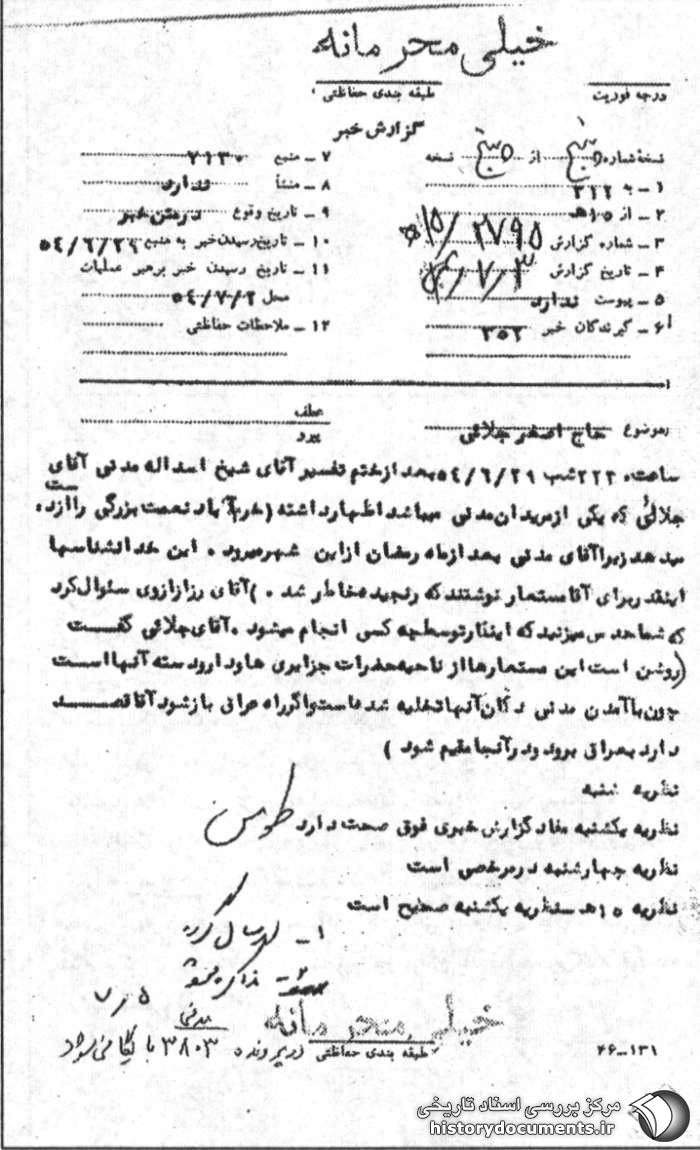 خیلی محرمانه
درجه فوریت
طبقه بندی حفاظتی
گزارش خبر
نسخهٔ شماره از نسخه
۱ - به ۳۱۲
۲ - از ۱۵ه
۳ - شماره گزارش ۲۷۹۵/۱۵ه
۴ - تاریخ گزارش ۷/۳
۵ - پیوست ندارد
۶ - گیرندگان خبر ۳۵۲
۷ - منبع ۷۱۳۰
۸ - منشأ ندارد
۹ - تاریخ وقوع درمتن خبر
۱۰ - تاریخ رسیدن خبر به منبع ۵۴/۶/۲۹
۱۱ - تاریخ رسیدن خبر برهبر عملیات
محل ۵۴/۷/۲
۱۲ - ملاحظات حفاظتی
موضوع حاج اصغر جلائی
عطف
پیرو
ساعت ۲۲۳۰ شب ۵۴/۶/۲۹ بعد از ختم تفسیر آقای شیخ اسداله مدنی آقای
جلائی که یکی از مریدان مدنی میباشد اظهار داشته (خرم‌آباد نعمت بزرگی را از دست
میدهد زیرا آقای مدنی بعد از ماه رمضان از این شهر میرود . این خدانشناسها
اینقدر برای آقا مستعار نوشتند که رنجیده خاطر شد . ) آقای رزاز از وی سئوال کرد
که شما حدس میزنید که اینکار توسط چه کسی انجام میشود . آقای جلائی گفت
(روشن است این مستعارها از ناحیه حضرات جزایری ها و دار و دسته آنها است
چون با آمدن مدنی دکان آنها تخلیه شده است و اگر راه عراق باز شود آقا قصد
دارد بعراق برود و در آنجا مقیم شود )
نظریه شنبه
نظریه یکشنبه مفاد گزارش خبری فوق صحت دارد
نظریه چهارشنبه در مرخصی است
نظریه ۱۵ه‍ نظریه یکشنبه صحیح است
۱ -
۷/۵
خیلی محرمانه
طبقه بندی حفاظتی
در پرونده مدنی ۳۸۰۳ بایگانی شود
۶۶-۱۳۱
مرکز بررسی اسناد تاریخی
historydocuments.ir